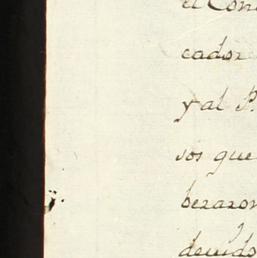 el Con
cador
y al P.
sos que
bezaron
devido